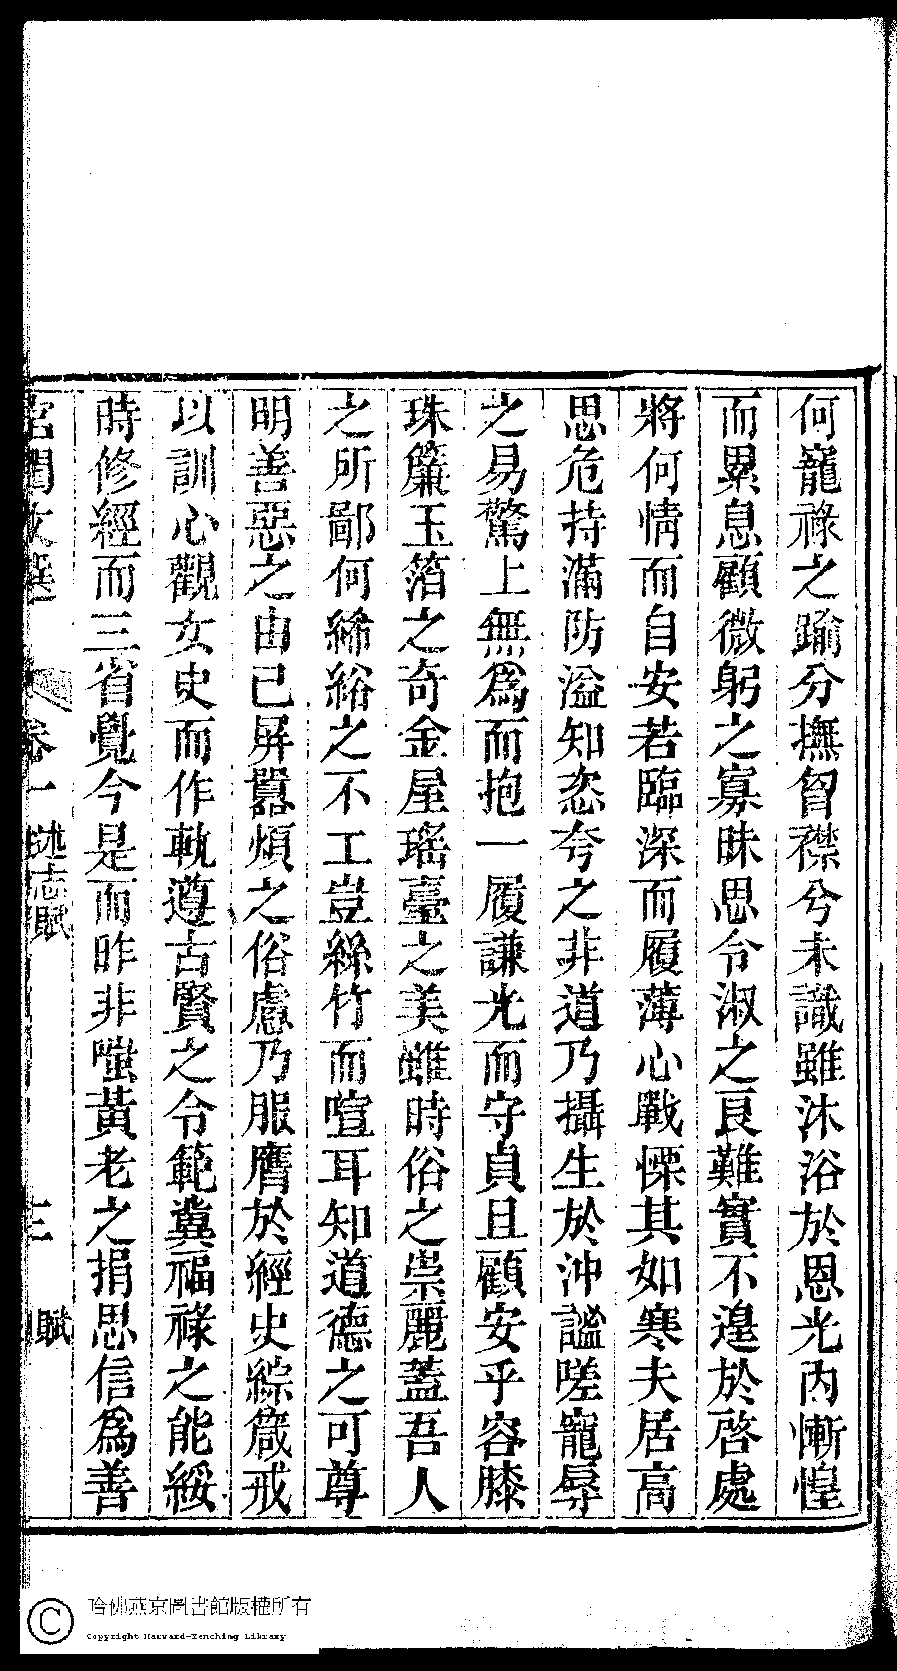 何寵祿之踰分撫胷襟兮未識雖沐浴於恩光內慚惶
而累息顧微躬之寡昧思令淑之良難實不遑於啓處
將何情而自安若臨深而履薄心戰慄其如寒夫居高
思危持滿防溢知恣夸之非道乃攝生於沖謐嗟寵辱
之易驚上無爲而抱一履謙光而守貞且顧安乎容膝
珠簾玉箔之奇金屋瑤臺之美雖時俗之崇麗蓋吾人
之所鄙何絺綌之不工豈絲竹而喧耳知道德之可尊
明善惡之由已屏囂煩之俗慮乃服膺於經史綜箴戒
以訓心觀女史而作軌遵古賢之令範冀福祿之能綏
時修經而三省覺今是而昨非嗤黃老之捐思信爲善
宮閨文選 卷一 述志賦 三 賦
哈佛燕京圖書館版權所有
Copyright Harvard-Yenching Library